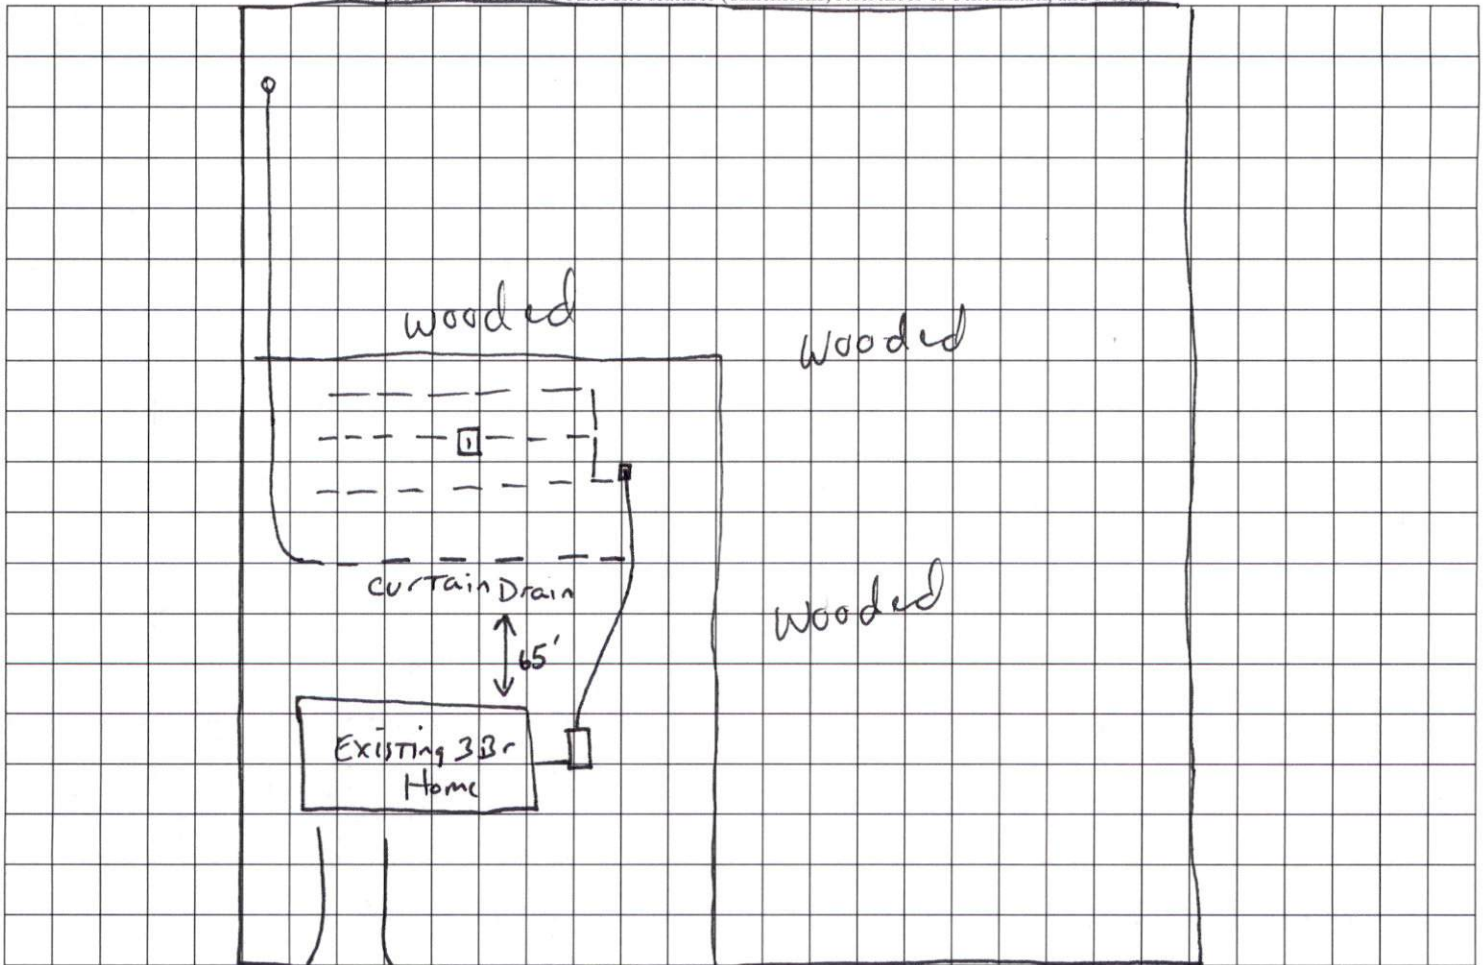 wooded
Wooded
1
Curtain Drain
65'
Wooded
Existing 3Br
Home